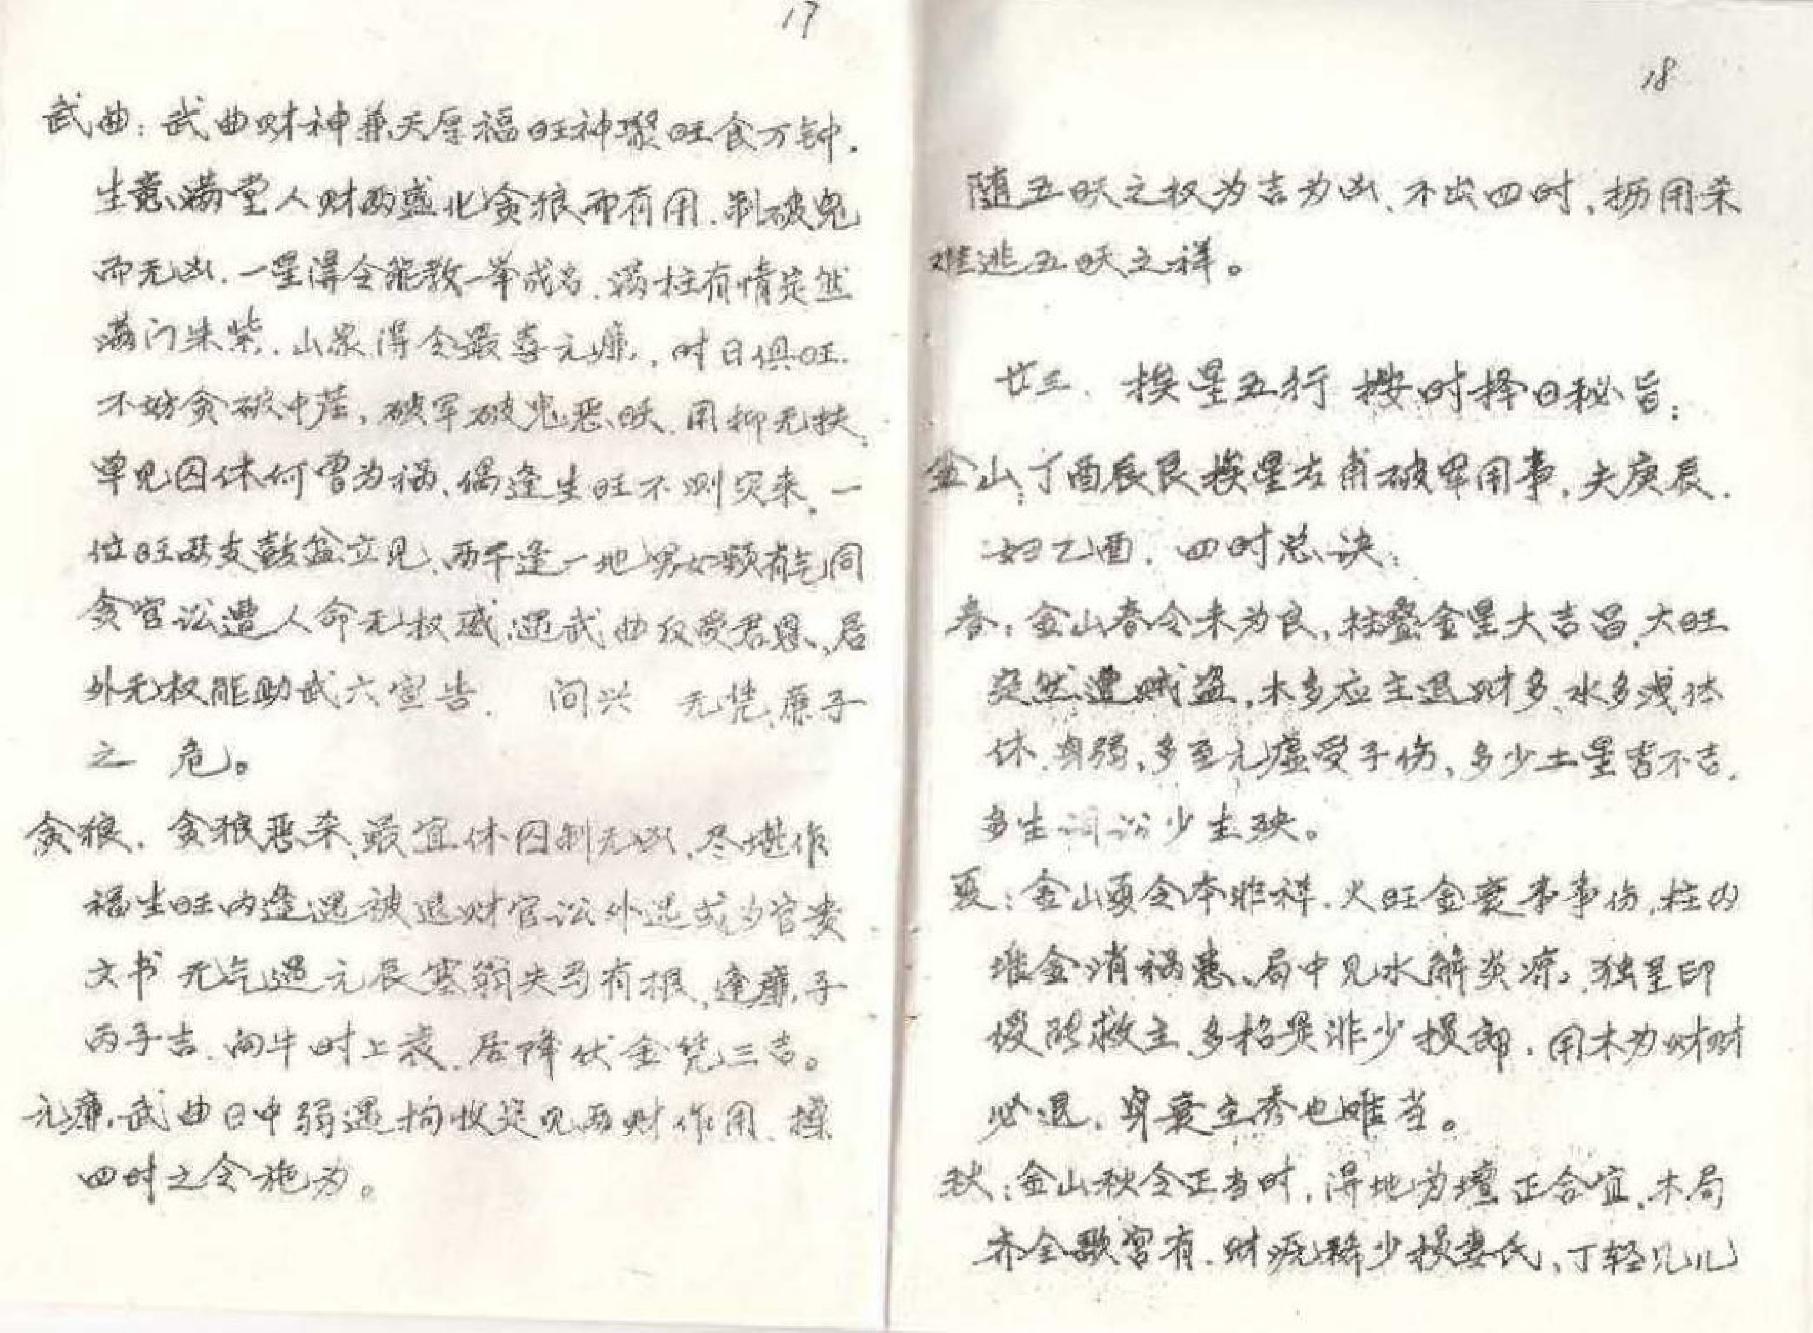 17
武曲：武曲财神兼天厚福旺神聚旺食万钟.
生意满堂人财两盛化贪狼而有用.制破鬼
而无凶.一星得令能教一举成名.满柱有情定然
满门朱紫.山家得令最喜元廉,时日俱旺.
不妨贪破中落,破军破鬼恶旺.用柳无扶.
单见囚休何曾为祸,偶逢生旺不测灾来.一
位旺两支鼓盆立见,两干逢一地男女颗有气同
贪官讼遭人命无权威遇武曲收受君恩,居
外无权能助武六宣告. 问兴 无凭廉子
之 危。
贪狼.贪狼恶杀最宜休囚制无凶.尽堪作
福生旺内逢遇被退财官讼外遇或为官贵
文书无气遇元辰塞翁失马有根,逢廉子
丙子吉.闹牛时上衰.居降伏金凭三吉。
元廉.武曲日中弱遇拘收定见两财作用.操
四时之令施为。
18
随五旺之权为吉为凶.不出四时,扬用杀
难逃五旺之祥。
廿三.挨星五行按时择日秘旨:
金山:丁酉辰艮挨星右甫破军用事.夫庚辰.
妇乙酉.四时总诀:
春:金山春令未为良,柱叠金星大吉昌.大旺
突然遭贼盗,木多应主退财多.水多浅体
休.身弱,多至元虚受子伤,多少土星皆不吉.
多生词讼少生殃。
夏:金山夏令本非祥.火旺金衰事事伤,柱内
堆金消祸患、局中见水解炎凉,独星印
绶能救主.多招是非少损郎.用木为财财
必退,身衰主秀也唯当。
秋:金山秋令正当时,得地为壇正合宜.木局
齐全歌富有.财源稀少损妻氏,丁轻见儿